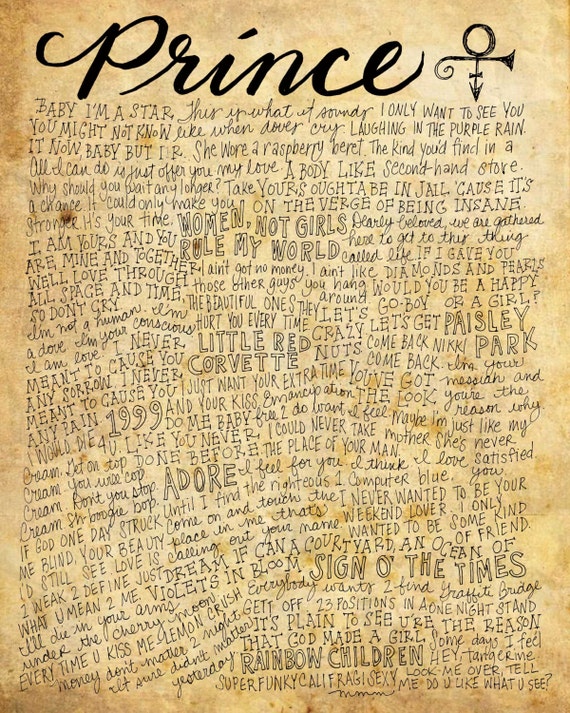 Prince
BABY I'M A STAR. This is what it sounds I ONLY WANT TO SEE YOU
YOU MIGHT NOT KNOW like when doves cry. LAUGHING IN THE PURPLE RAIN.
IT NOW, BABY BUT I R. She wore a raspberry beret. The kind you'd find in a
All I can do is just offer you my love A BODY LIKE second-hand store.
Why should you wait any longer? Take YOURS OUGHTA BE IN JAIL 'CAUSE IT'S
a chance It could only make you ON THE VERGE OF BEING INSANE.
stronger It's your time. WOMEN, NOT GIRLS Dearly beloved, we are gathered
I AM YOURS AND YOU RULE MY WORLD here to get to this thing
ARE MINE AND TOGETHER called life IF I GAVE YOU
WE'LL LOVE THROUGH I ain't got no money. I ain't like DIAMONDS AND PEARLS
ALL SPACE AND TIME, those other guys you hang WOULD YOU BE A HAPPY
SO DON'T CRY. THE BEAUTIFUL ONES THEY around LET'S GO BOY OR A GIRL?
I'm not a human I'm HURT YOU EVERY TIME CRAZY LET'S GET PAISLEY
a dove I'm your conscious LITTLE RED NUTS. COME BACK NIKKI PARK
I am love I NEVER CORVETTE COME BACK. I'm your
MEANT TO CAUSE YOU I JUST WANT YOUR EXTRA TIME YOU'VE GOT messiah and
ANY SORROW. I NEVER AND YOUR KISS Emancipation THE LOOK you're the
MEANT TO CAUSE YOU 1999 DO ME BABY free 2 do want I feel reason why.
ANY PAIN. LIKE YOU NEVER I COULD NEVER TAKE Maybe I'm just like my
I WOULD DIE 4 U. DONE BEFORE. THE PLACE OF YOUR MAN. mother She's never
Cream. Get on top ADORE I feel for you. I think I love satisfied
Cream. You will cop Until I find the righteous 1 Computer blue. you
Cream. Don't you stop come on and touch the I NEVER WANTED TO BE YOUR
Cream. Sh-boogie bop. place in me that's WEEKEND LOVER. I ONLY
IF GOD ONE DAY STRUCK calling out your name WANTED TO BE SOME KIND
ME BLIND, YOUR BEAUTY DREAM IF U CAN A COURTYARD, AN OCEAN OF OF FRIEND.
I'D STILL SEE LOVE IS VIOLETS IN BLOOM SIGN O' THE TIMES
2 WEAK 2 DEFINE, JUST Everybody wants 2 find Graffiti Bridge
WHAT U MEAN 2 ME. GETT OFF 23 POSITIONS IN A ONE NIGHT STAND
I'll die in your arms IT'S PLAIN TO SEE U R THE REASON
under the cherry moon THAT GOD MADE A GIRL Some days I feel
EVERY TIME U KISS ME LEMON CRUSH RAINBOW CHILDREN HEY, tangerine
Money don't matter 2 night LOOK ME OVER, TELL
It sure didn't matter SUPERFUNKYCALIFRAGISEXY ME DO U LIKE WHAT U SEE?
yesterday mmmm